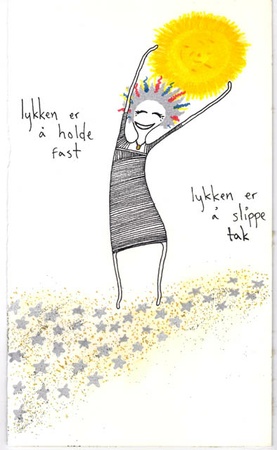 lykken er
å holde
fast
lykken er
å slippe
tak